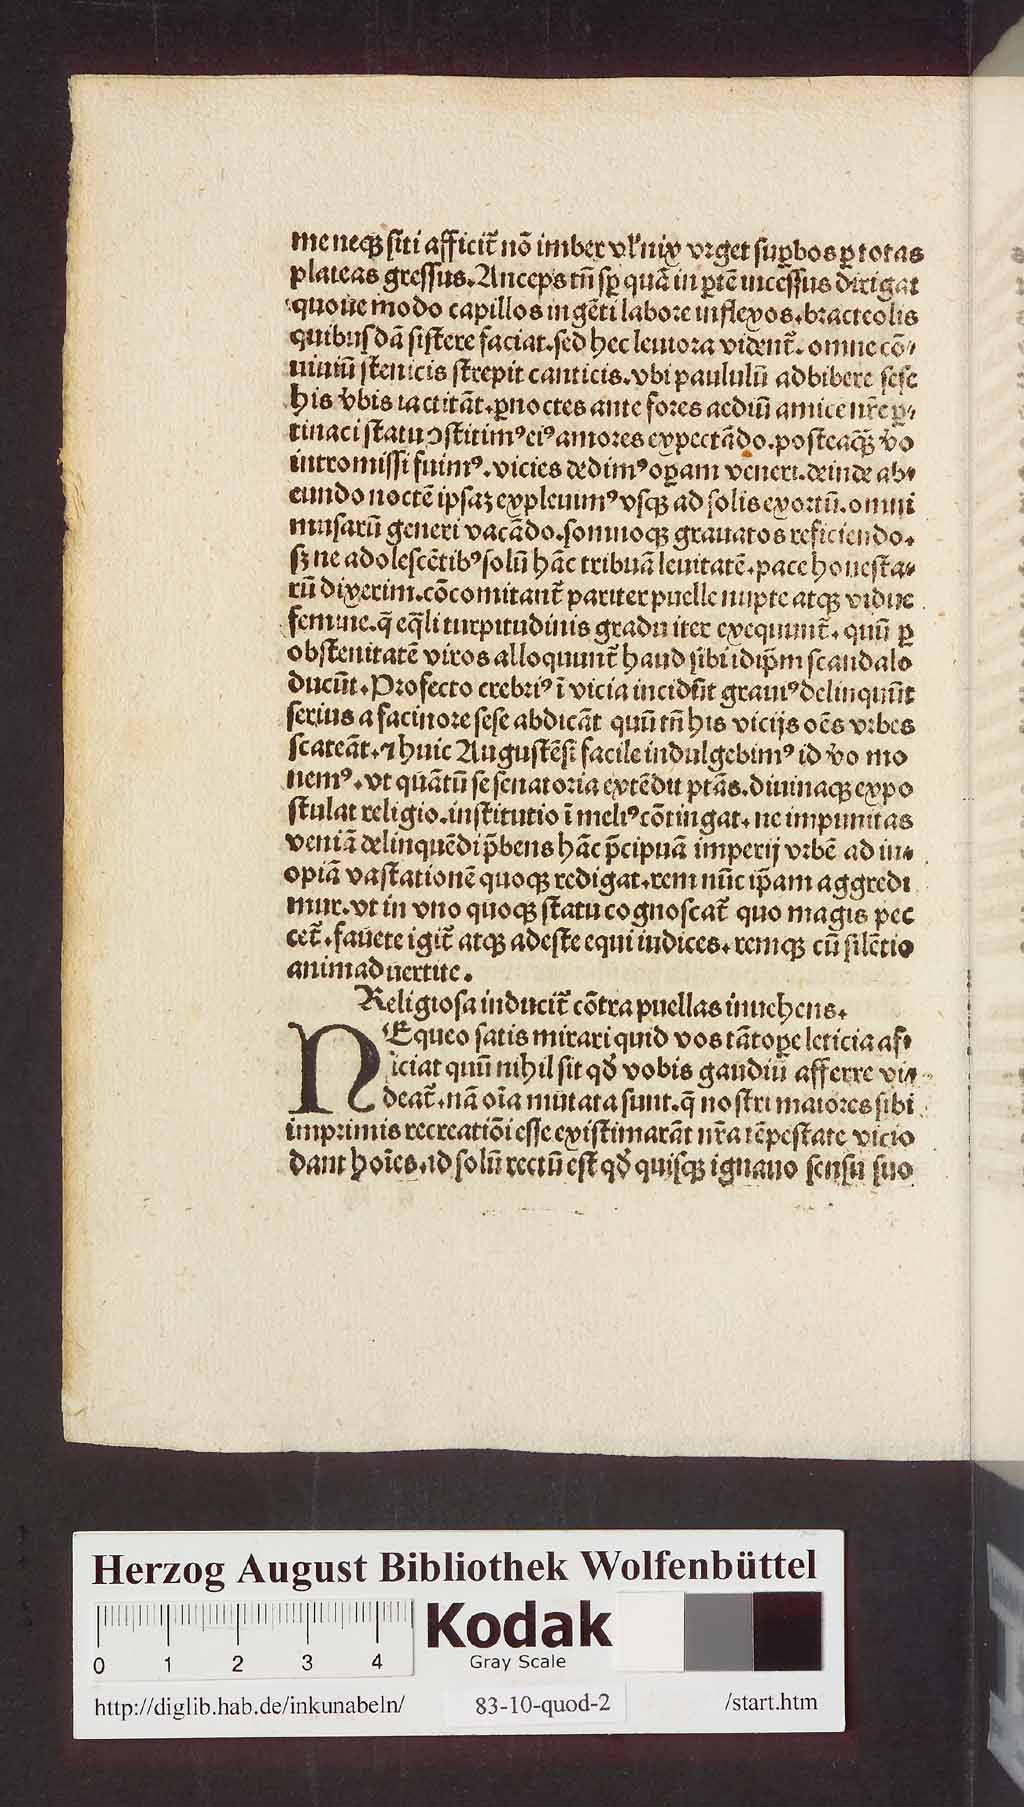 me neqꝫ siti afficit᷑ nō imber vl' nix vrget suꝑbos ꝑ totas
plateas gressus. Anceps tn̄ sꝑ quā in ꝑtē incessus dirigat
quoue modo capillos ingēti labore inflexos. bracteolis
quibusdā sistere faciat. sed hec leuiora vident᷑. omne cō/
uiuiū scenicis strepit canticis. vbi paululū adbibere sese
his v̄bis iactitāt. ꝑnoctes ante fores aediū amice nr̄e ꝑ/
tinaci statu ↄstitimꝰ eiꝰ amores expectādo. posteaqꝫ v̄o
intromissi fuimꝰ. vicies dedimꝰ oꝑam veneri. deinde ab/
eundo noctē ipsaꝫ expleuimꝰ vsqꝫ ad solis exortū. omni
musarū generi vacādo. somnoqꝫ grauatos reficiendo.
sꝫ ne adolescētibꝰ solū hāc tribuā leuitatē. pace honesta/
rū dixerim. cōcomitant᷑ pariter puelle nupte atqꝫ vidue
femine. q̄ eq̄li turpitudinis gradu iter exequunt᷑. quū ꝑ
obscenitatē viros alloquunt᷑ haud sibi idip̄m scandalo
ducūt. Profecto crebriꝰ ī vicia incidūt grauiꝰ delinquūt
serius a facinore sese abdicāt quū tn̄ his vicijs oēs vrbes
scateāt. ⁊ huic Augustēsi facile indulgebimꝰ id v̄o mo
nemꝰ. vt quātū se senatoria extēdit ptās. diuinaqꝫ expo
stulat religio. institutio ī meliꝰ cōtingat. ne impunitas
veniā delinquēdi p̄bens hāc p̄cipuā imperij vrbē ad in/
opiā vastationē quoqꝫ redigat. rem nūc ip̄am aggredi
mur. vt in vno quoqꝫ statu cognoscat᷑ quo magis pec
cet᷑. fauete igit᷑ atqꝫ adeste equi iudices. remqꝫ cū silētio
animaduertite.
Religiosa inducit᷑ cōtra puellas inuehens.
NEqueo satis mirari quid vos tātoꝑe leticia af/
iciat quū nihil sit qď vobis gaudiū afferre vi/
deat᷑. nā oīa mutata sunt. q̄ nostri maiores sibi
imprimis recreatiōi esse existimarāt nr̄a tēpestate vicio
dant hoīes. id solū rectū est qď quisqꝫ ignauo sensu suo
Herzog August Bibliothek Wolfenbüttel
0 1 2 3 4
Kodak
Gray Scale
http://diglib.hab.de/inkunabeln/ 83-10-quod-2 /start.htm